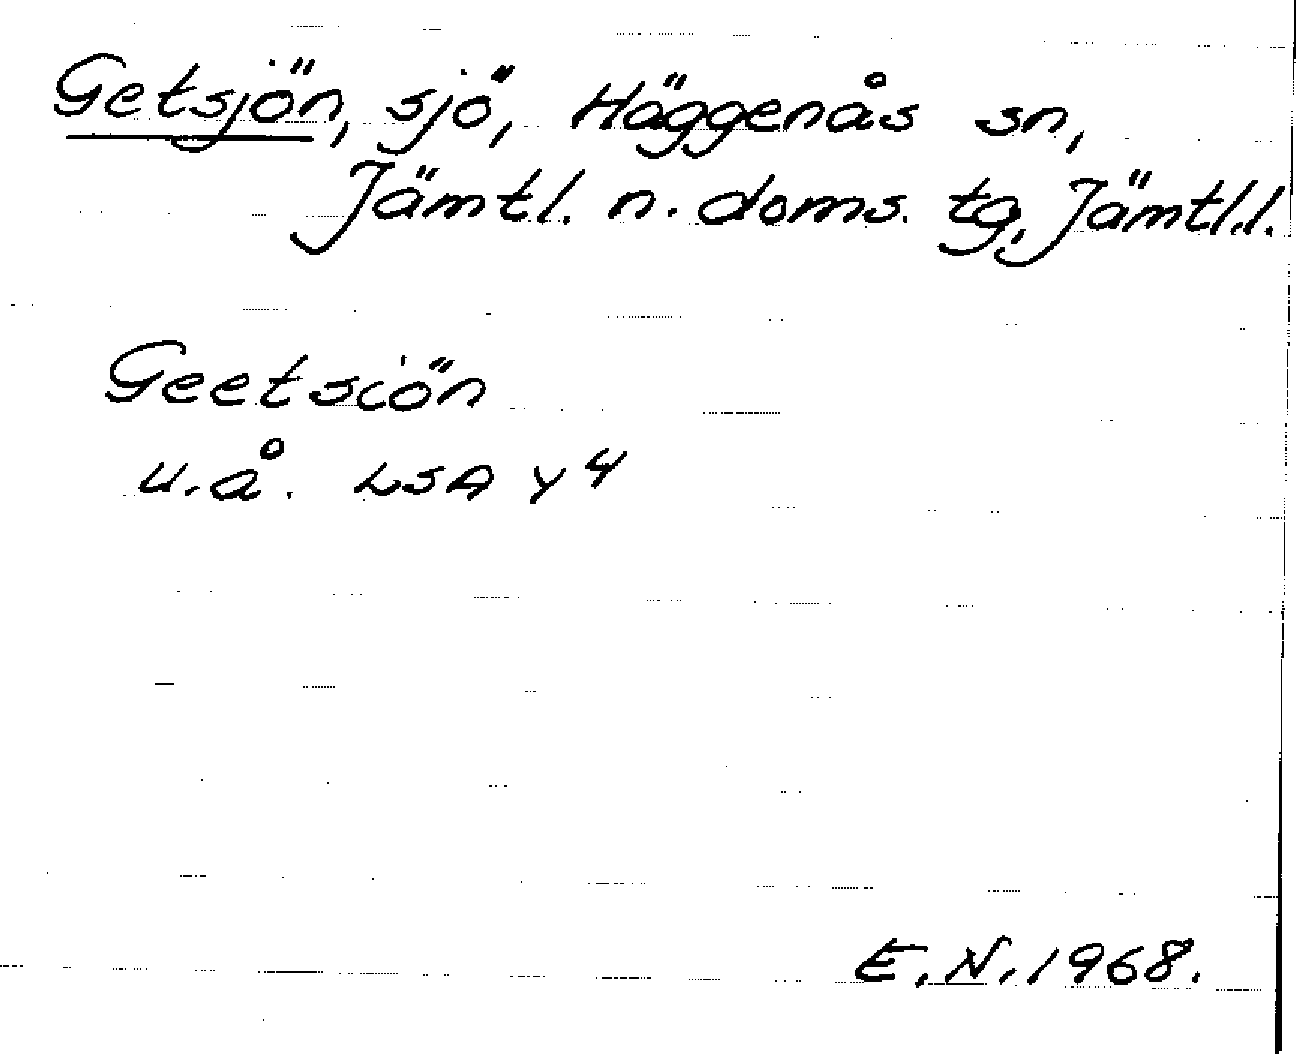 Getsjön, sjö, Häggenås sn,
Jämtl. n. doms. tg, Jämtl.l.
Geetsiön
u.å. LSA Y4
E.N. 1968.